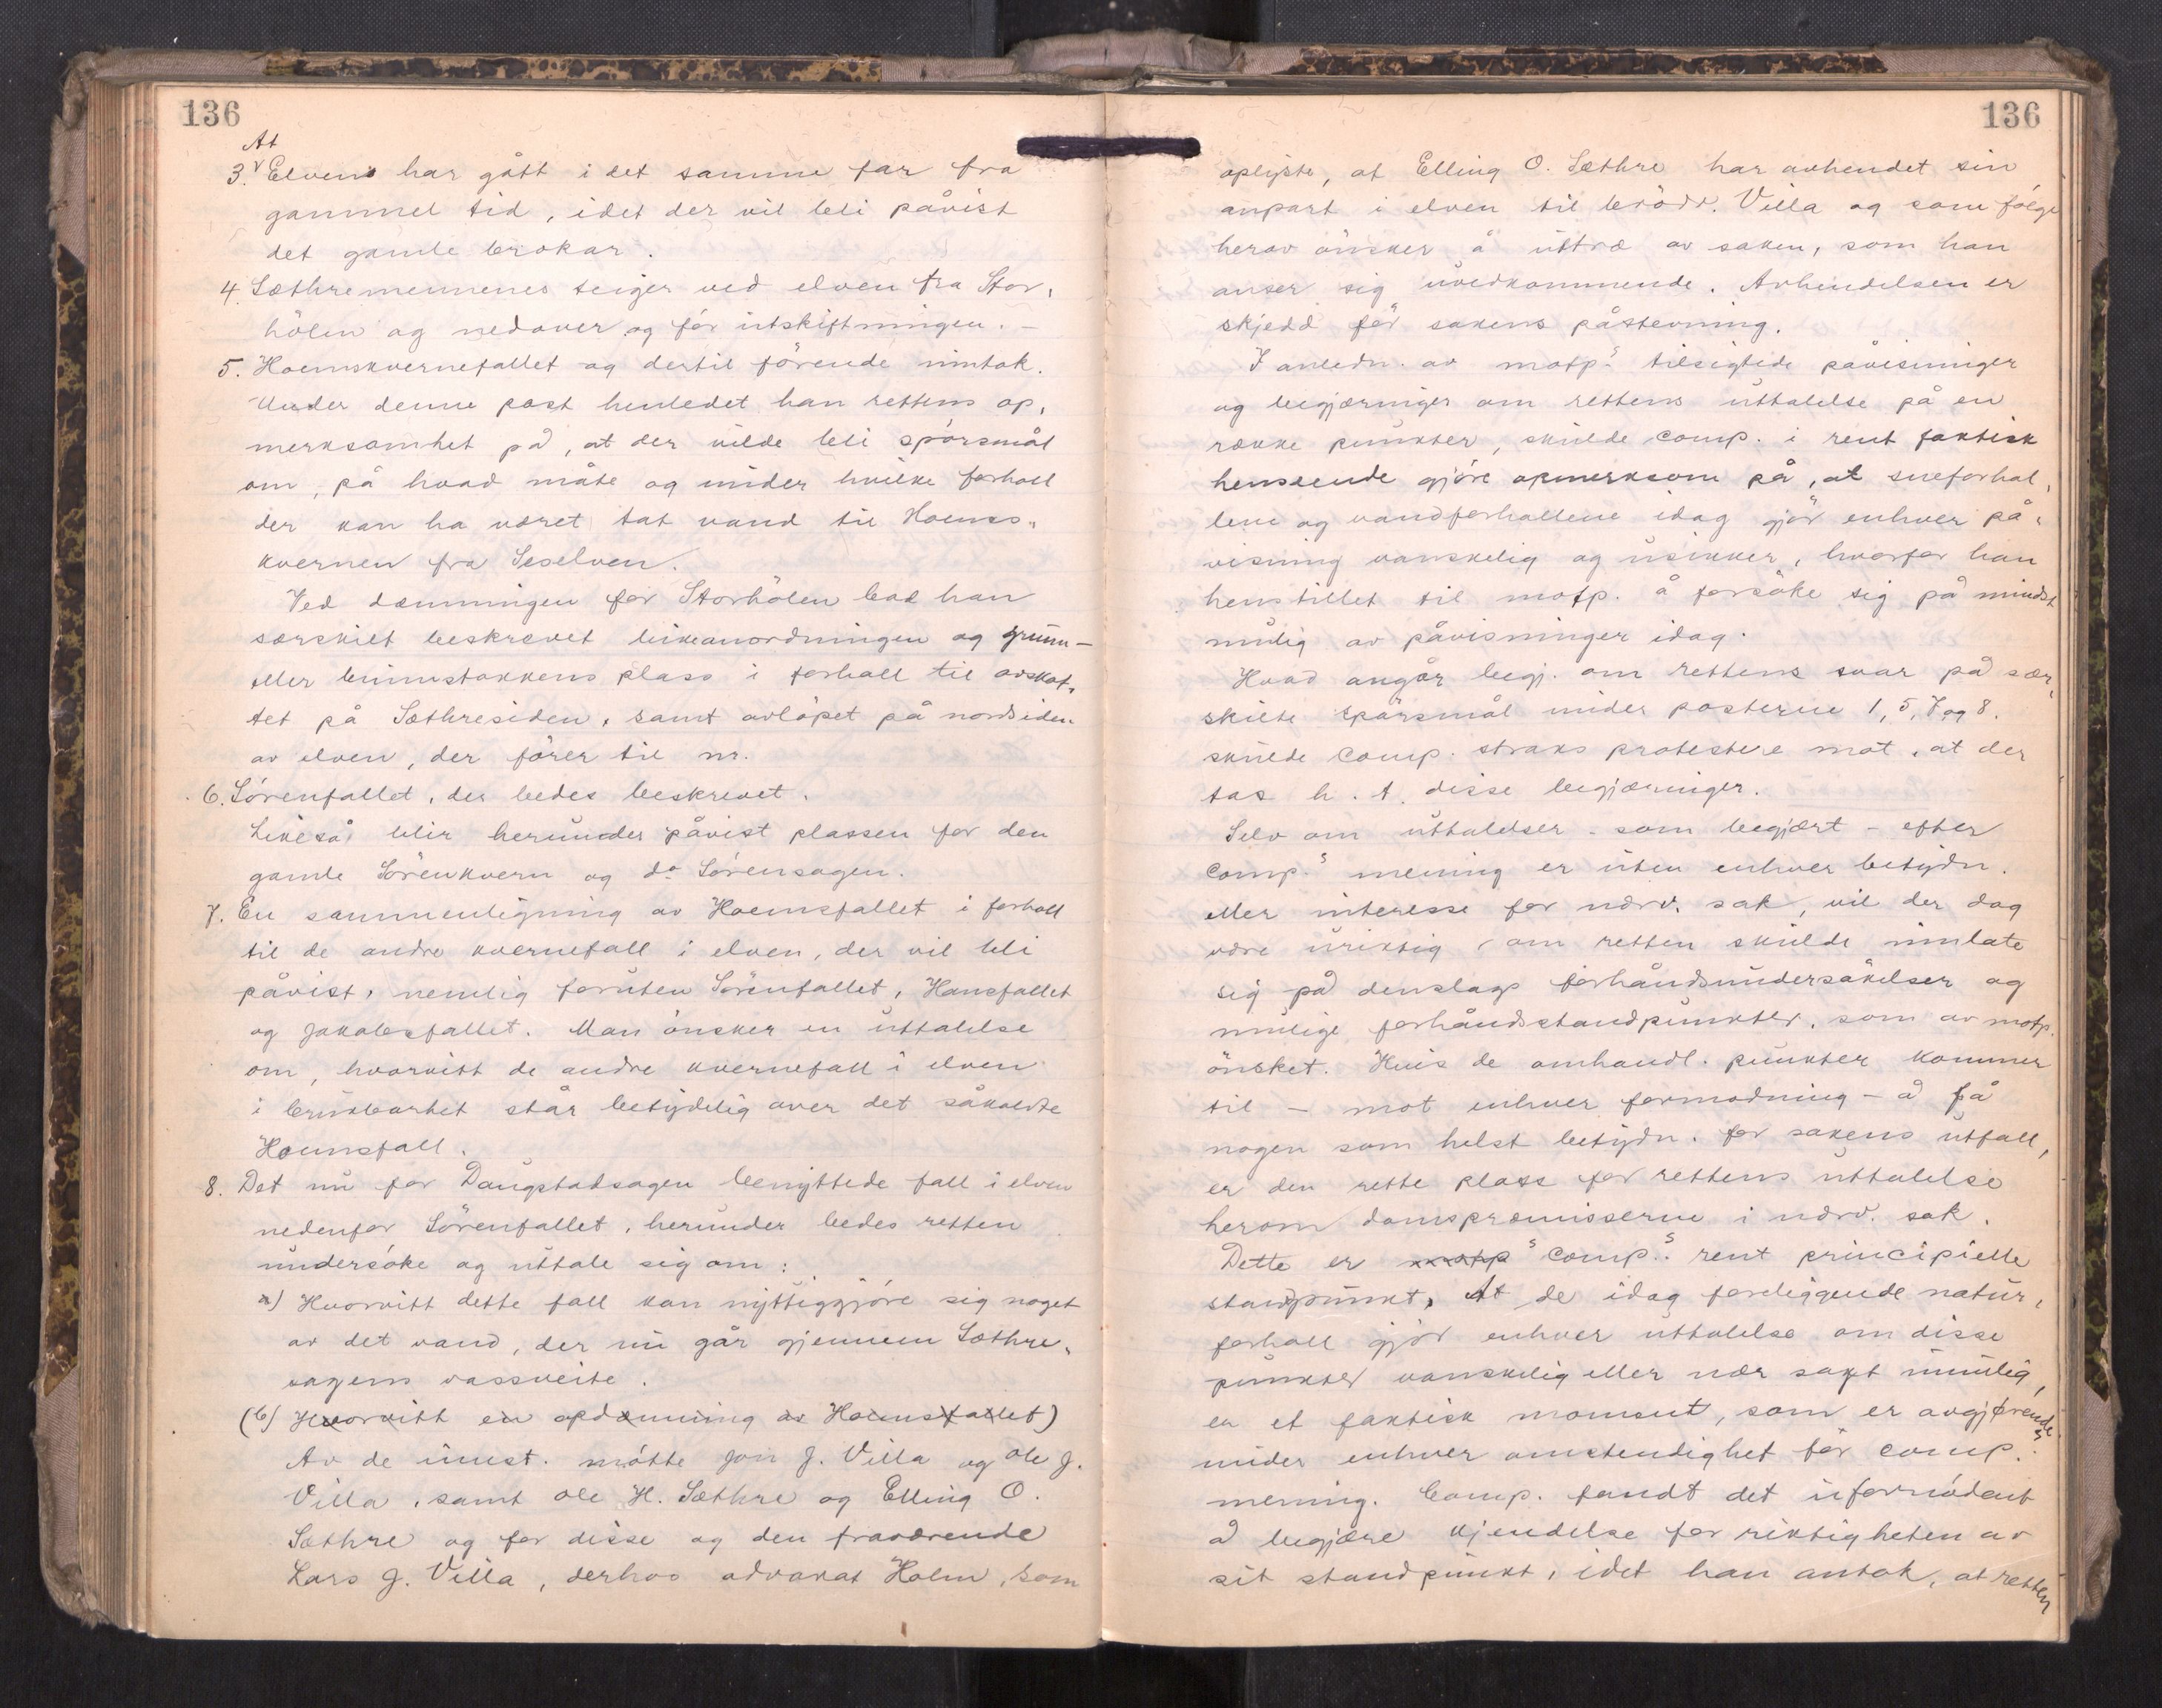 136
At
3. Elven har gått i det samme far fra
gammel tid, idet der vil bli påvist
det gamle brokar.
4. Sæthremennenes teiger ved elven fra Stor-
hölen og nedover og för utskiftningen. –
5. Hoemskvernefallet og dertil förende inntak.
Under denne post henledet han rettens op-
merksomhet på, at der vilde bli spörsmål
om, på hvad måte og under hvilke forholl
der kan ha været tat vand til Hoems-
kvernen fra Seselven.
Ved dæmningen for Storhölen bad han
særskilt beskrevet lukeanordningen og grunn-
eller bunnstokkens plass i forholl til avskot-
tet på Sæthresiden, samt avlöpet på nordsiden
av elven, der förer til nr.
6. Sörenfallet, der bedes beskrevet.
Likeså blir herunder påvist plassen for den
gamle Sörenkvern og do Sörensagen.
7. En sammenligning av Hoemsfallet i forholl
til de andre kvernefall i elven, der vil bli
påvist, nemlig foruten Sörenfallet, Hansfallet
og Jakobsfallet. Man önsker en uttalelse
om, hvorvitt de andre kvernefall i elven
i brukbarhet står betydelig over det såkaldte
Hoemsfall.
8. Det nu for Daugstadsagen benyttede fall i elven
nedenfor Sörenfallet, herunder bedes retten
undersöke og uttale sig om:
a) Hvorvitt dette fall kan nyttiggjöre sig noget
av det vand, der nu går gjennem Sæthre-
sagens vassveite.
(b) Hvorvitt en opdemning av Hoemsfallet)
Av de innst. mötte Jon J. Villa og Ole J.
Villa, samt Ole H. Sæthre og Elling O.
Sæthre og for disse og den fraværende
Lars J. Villa, derhos advokat Holm, som
136
oplyste, at Elling O. Sæthre har avhendet sin
anpart i elven til brödr. Villa og som fölge
herav önsker å uttræ av saken, som han
anser sig uvedkommende. Avhendelsen er
skjedd för sakens påstevning.
I anledn. av motp.s tilsigtede påvisninger
og begjæringer om rettens uttalelse på en
række punkter, skulde comp. i rent faktisk
henseende gjöre opmerksom på, at sneforhol-
lene og vandforhollene idag gjör enhver på-
visning vanskelig og usikker, hvorfor han
henstillet til motp. å forsöke sig på mindst
mulig av påvisninger idag.
Hvad angår begj. om rettens svar på sær-
skilte spörsmål under posterne 1, 5, 7 og 8.
skulde comp. straks protestere mot, at der
tas h. t. disse begjæringer.
Selv om uttalelser – som begjært – efter
comp.s mening er uten enhver betydn.
eller interesse for nærv. sak, vil der dog
være uriktig om retten skulde innlate
sig på denslags forhåndsundersökelser og
mulige forhåndsstandpunkter, som av motp.
önsket. Hvis de omhandl. punkter kommer
til – mot enhver formodning – å få
nogen som helst betydn. for sakens utfall,
er den rette plass for rettens uttalelse
herom domspræmisserne i nærv. sak.
Dette er motp s comp.s rent principielle
standpunkt, At de idag foreliggende natur-
forholl gjör enhver uttalelse om disse
punkter vanskelig eller nær sagt umulig,
er et faktisk moment, som er avgjørende
under enhver omstendighet för comp.s
mening. Comp. fandt det ufornödent
å begjære kjendelse for riktigheten av
sit standpunkt, idet han antok, at retten